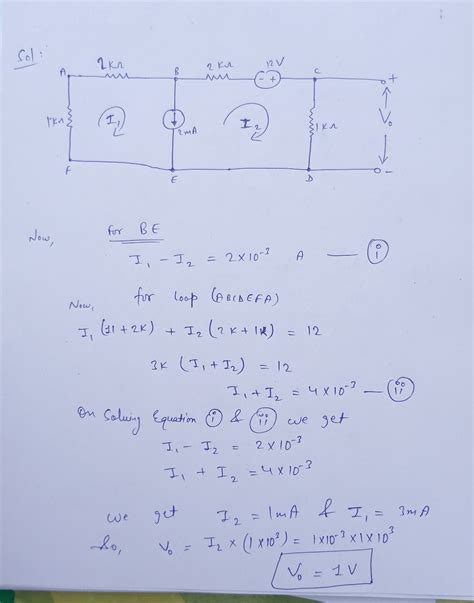 Sol:
2KΩ 2KΩ 12V
A B - + C +
1KΩ I₁ 2mA I₂ 1KΩ V₀
F E D -
Now, for BE
I₁ - I₂ = 2×10⁻³ A — (i)
Now, for loop (ABCDEFA)
I₁ (1K+2K) + I₂ (2K+1K) = 12
3K (I₁+I₂) = 12
I₁+I₂ = 4×10⁻³ — (ii)
On Solving Equation (i) & (ii) we get
I₁ - I₂ = 2×10⁻³
I₁ + I₂ = 4×10⁻³
we get I₂ = 1mA & I₁ = 3mA
So, V₀ = I₂ × (1×10³) = 1×10⁻³×1×10³
V₀ = 1V